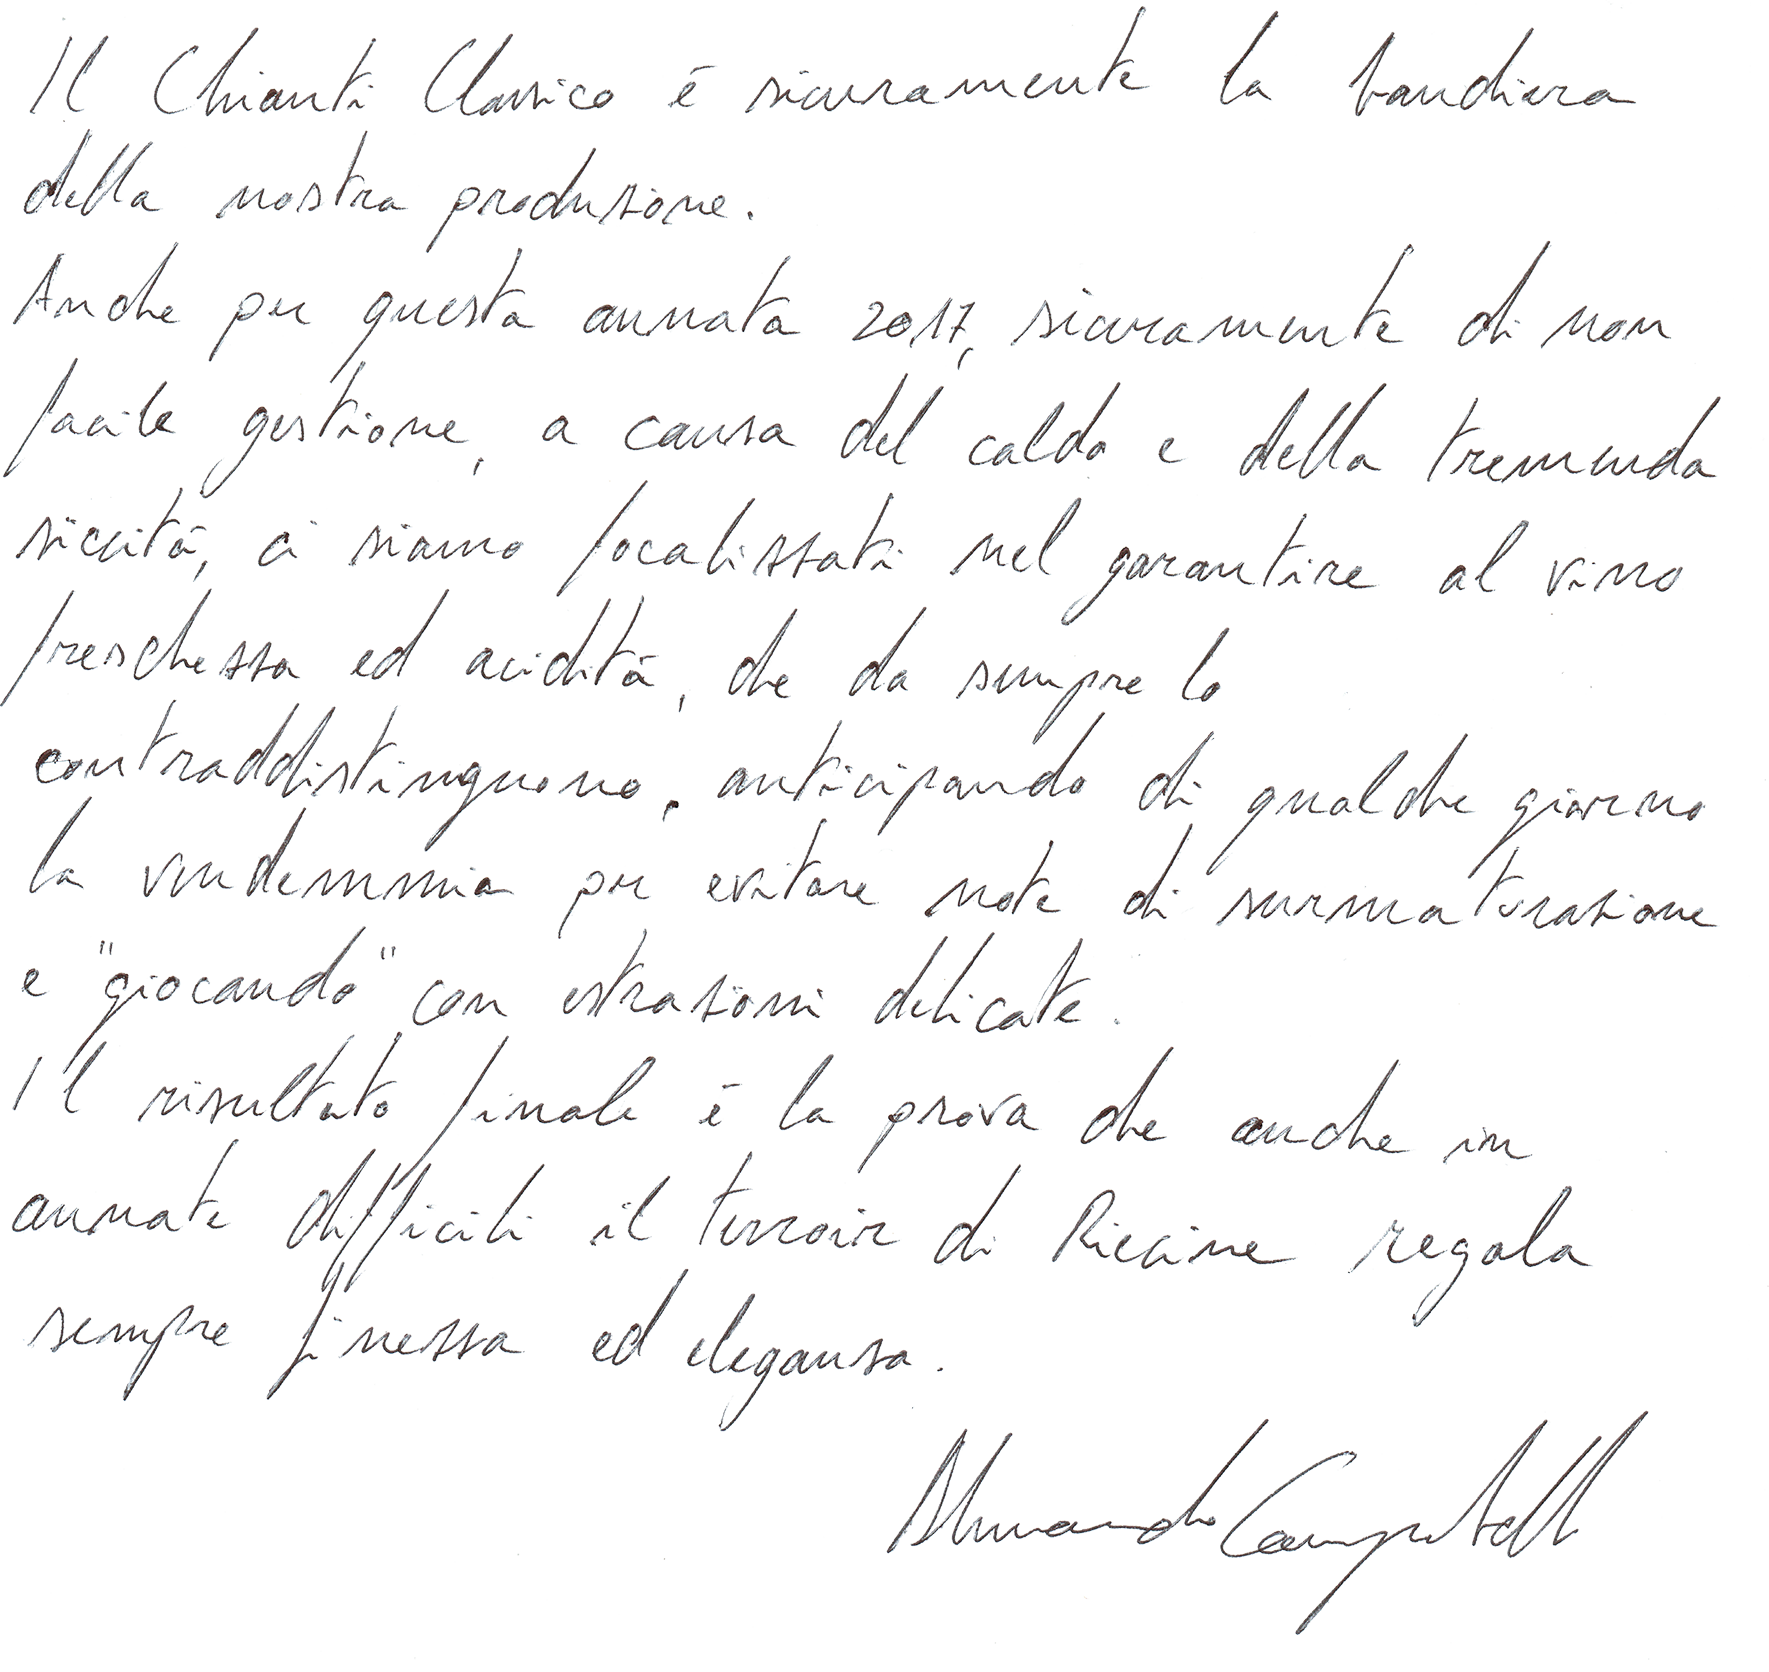 Il Chianti Classico è sicuramente la bandiera
della nostra produzione.
Anche per questa annata 2017, sicuramente di non
facile gestione, a causa del caldo e della tremenda
siccità, ci siamo focalizzati nel garantire al vino
freschezza ed acidità, che da sempre lo
contraddistinguono, anticipando di qualche giorno
la vendemmia per evitare note di surmaturazione
e "giocando" con estrazioni delicate.
Il risultato finale è la prova che anche in
annate difficili il terroir di Riecine regala
sempre finezza ed eleganza.